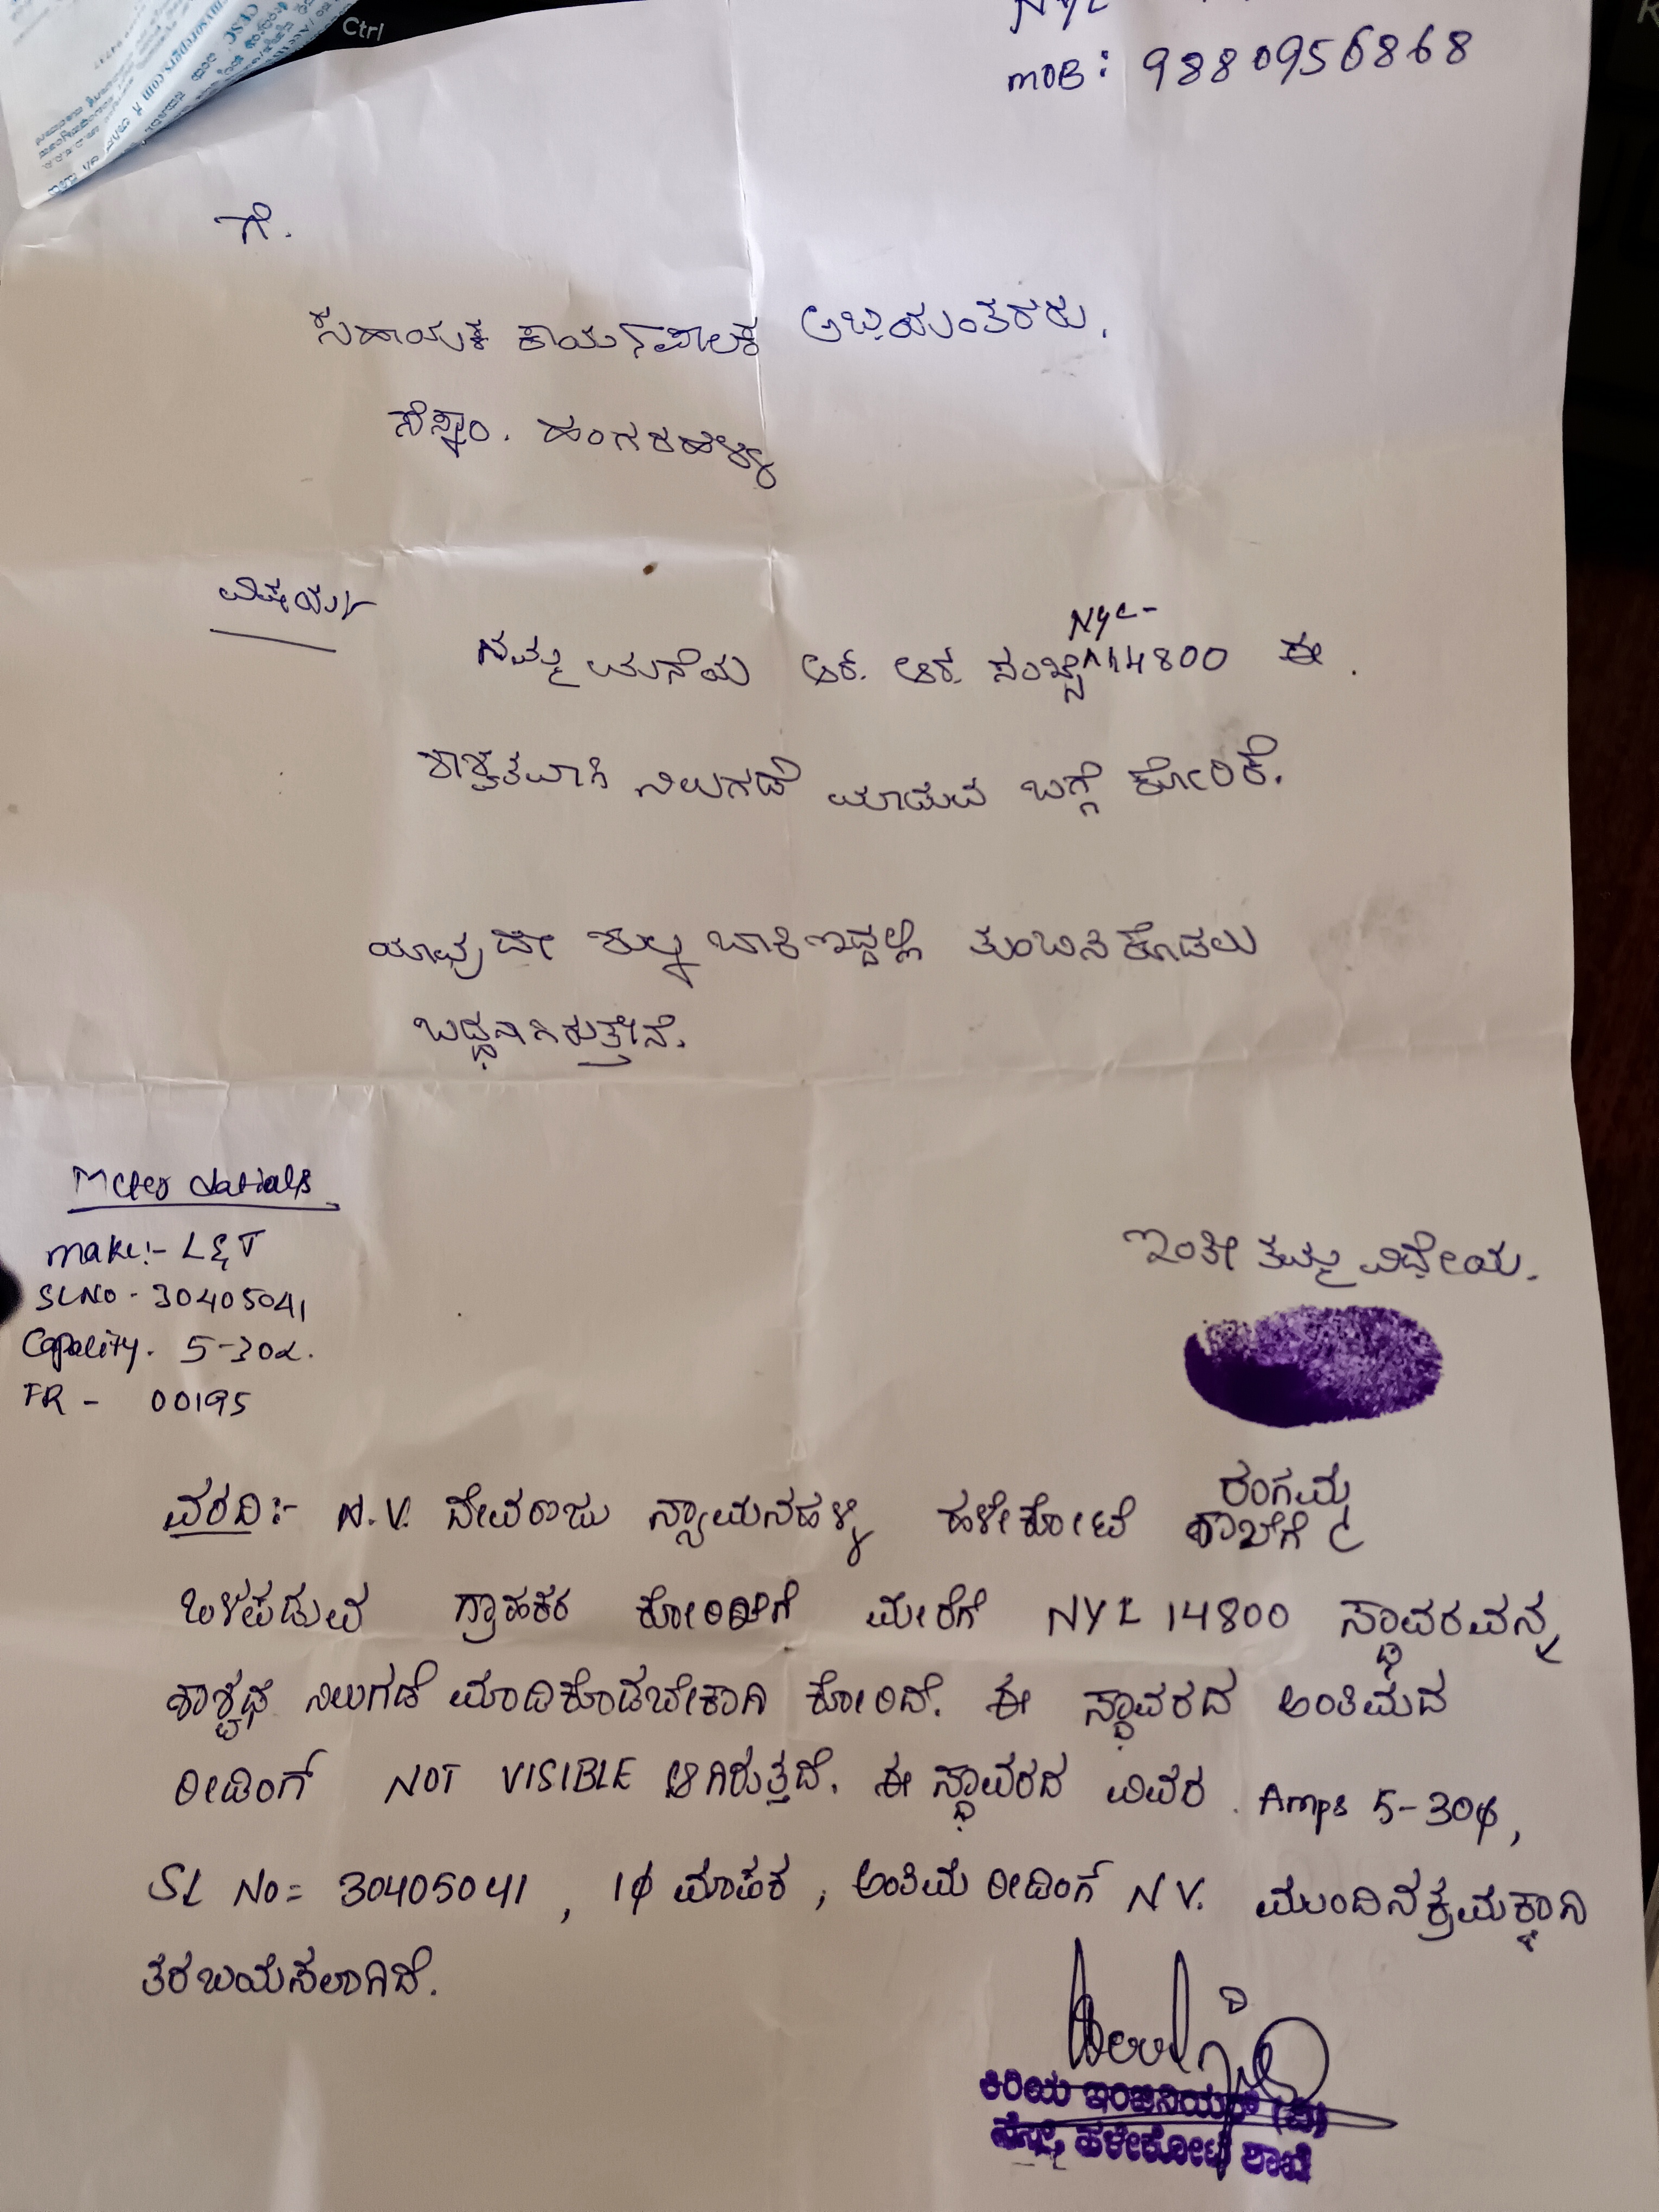 MOB: 9880956868
ಗೆ.
ಸಹಾಯಕ ಕಾರ್ಯಪಾಲಕ ಅಭಿಯಂತರರು.
ಸೆಸ್ಕಾಂ. ಹಂಗರಹಳ್ಳಿ
ವಿಷಯ:-
NYL-
ನಮ್ಮ ಮನೆಯ ಆರ್. ಆರ್. ಸಂಖ್ಯೆ 14800 ಈ.
ಶಾಶ್ವತವಾಗಿ ನಿಲುಗಡೆ ಮಾಡುವ ಬಗ್ಗೆ ಕೋರಿಕೆ.
ಯಾವುದೇ ಶುಲ್ಕ ಬಾಕಿ ಇದ್ದಲ್ಲಿ ತುಂಬಿಸಿಕೊಡಲು
ಬದ್ಧನಾಗಿರುತ್ತೇನೆ.
Meter datials
make:- L&T
SLNO - 30405041
Capality. 5-30a.
FR - 00195
ಇಂತೀ ತಮ್ಮ ವಿಧೇಯ.
ರಂಗಮ್ಮ
ವರದಿ:- N.V. ದೇವರಾಜು ನ್ಯಾಮನಹಳ್ಳಿ ಹಳೇಕೋಟೆ ಶಾಖೆಗೆ
ಒಳಪಡುವ ಗ್ರಾಹಕರ ಕೋರಿಕೆಗೆ ಮೇರೆಗೆ NYL 14800 ಸ್ಥಾವರವನ್ನು
ಶಾಶ್ವಥ ನಿಲುಗಡೆ ಮಾಡಿಕೊಡಬೇಕಾಗಿ ಕೋರಿದೆ. ಈ ಸ್ಥಾವರದ ಅಂತಿಮದ
ರೀಡಿಂಗ್ NOT VISIBLE ಆಗಿರುತ್ತದೆ. ಈ ಸ್ಥಾವರದ ವಿವರ. Amps 5-30ϕ,
SL No= 30405041, 1ϕ ಮಾಪಕ, ಅಂತಿಮ ರೀಡಿಂಗ್ N V. ಮುಂದಿನ ಕ್ರಮಕ್ಕಾಗಿ
ತರಬಯಸಲಾಗಿದೆ.
ಕಿರಿಯ ಇಂಜಿನಿಯರ್ (ವಿ)
ಸೆಸ್ಕ್, ಹಳೇಕೋಟೆ ಶಾಖೆ